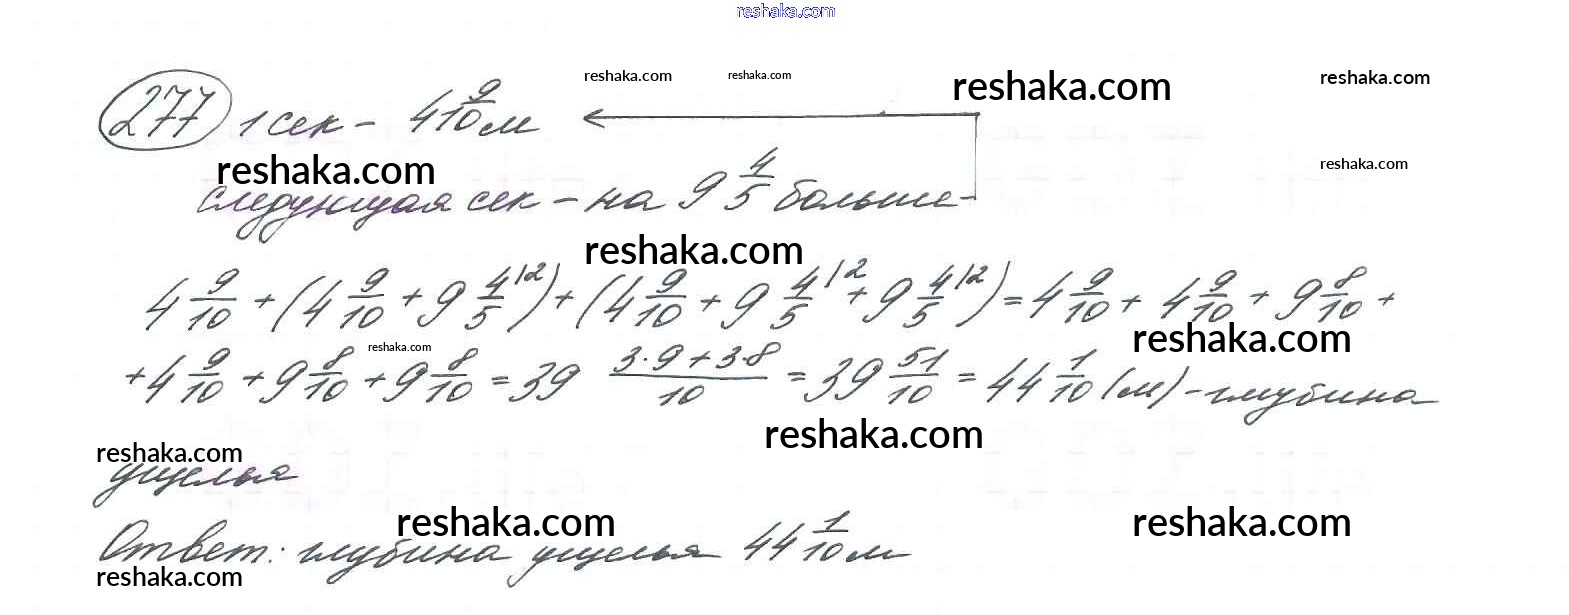 reshaka.com
277 1 сек - 4 9/10 м
reshaka.com reshaka.com reshaka.com reshaka.com
reshaka.com reshaka.com
следующая сек - на 9 4/5 больше
reshaka.com
4 9/10 + (4 9/10 + 9 4/5 |2) + (4 9/10 + 9 4/5 |2 + 9 4/5 |2) = 4 9/10 + 4 9/10 + 9 8/10 +
reshaka.com reshaka.com
+ 4 9/10 + 9 8/10 + 9 8/10 = 39 (3·9+3·8)/10 = 39 51/10 = 44 1/10 (м) - глубина
reshaka.com
reshaka.com
ущелья
reshaka.com reshaka.com
Ответ: глубина ущелья 44 1/10 м
reshaka.com